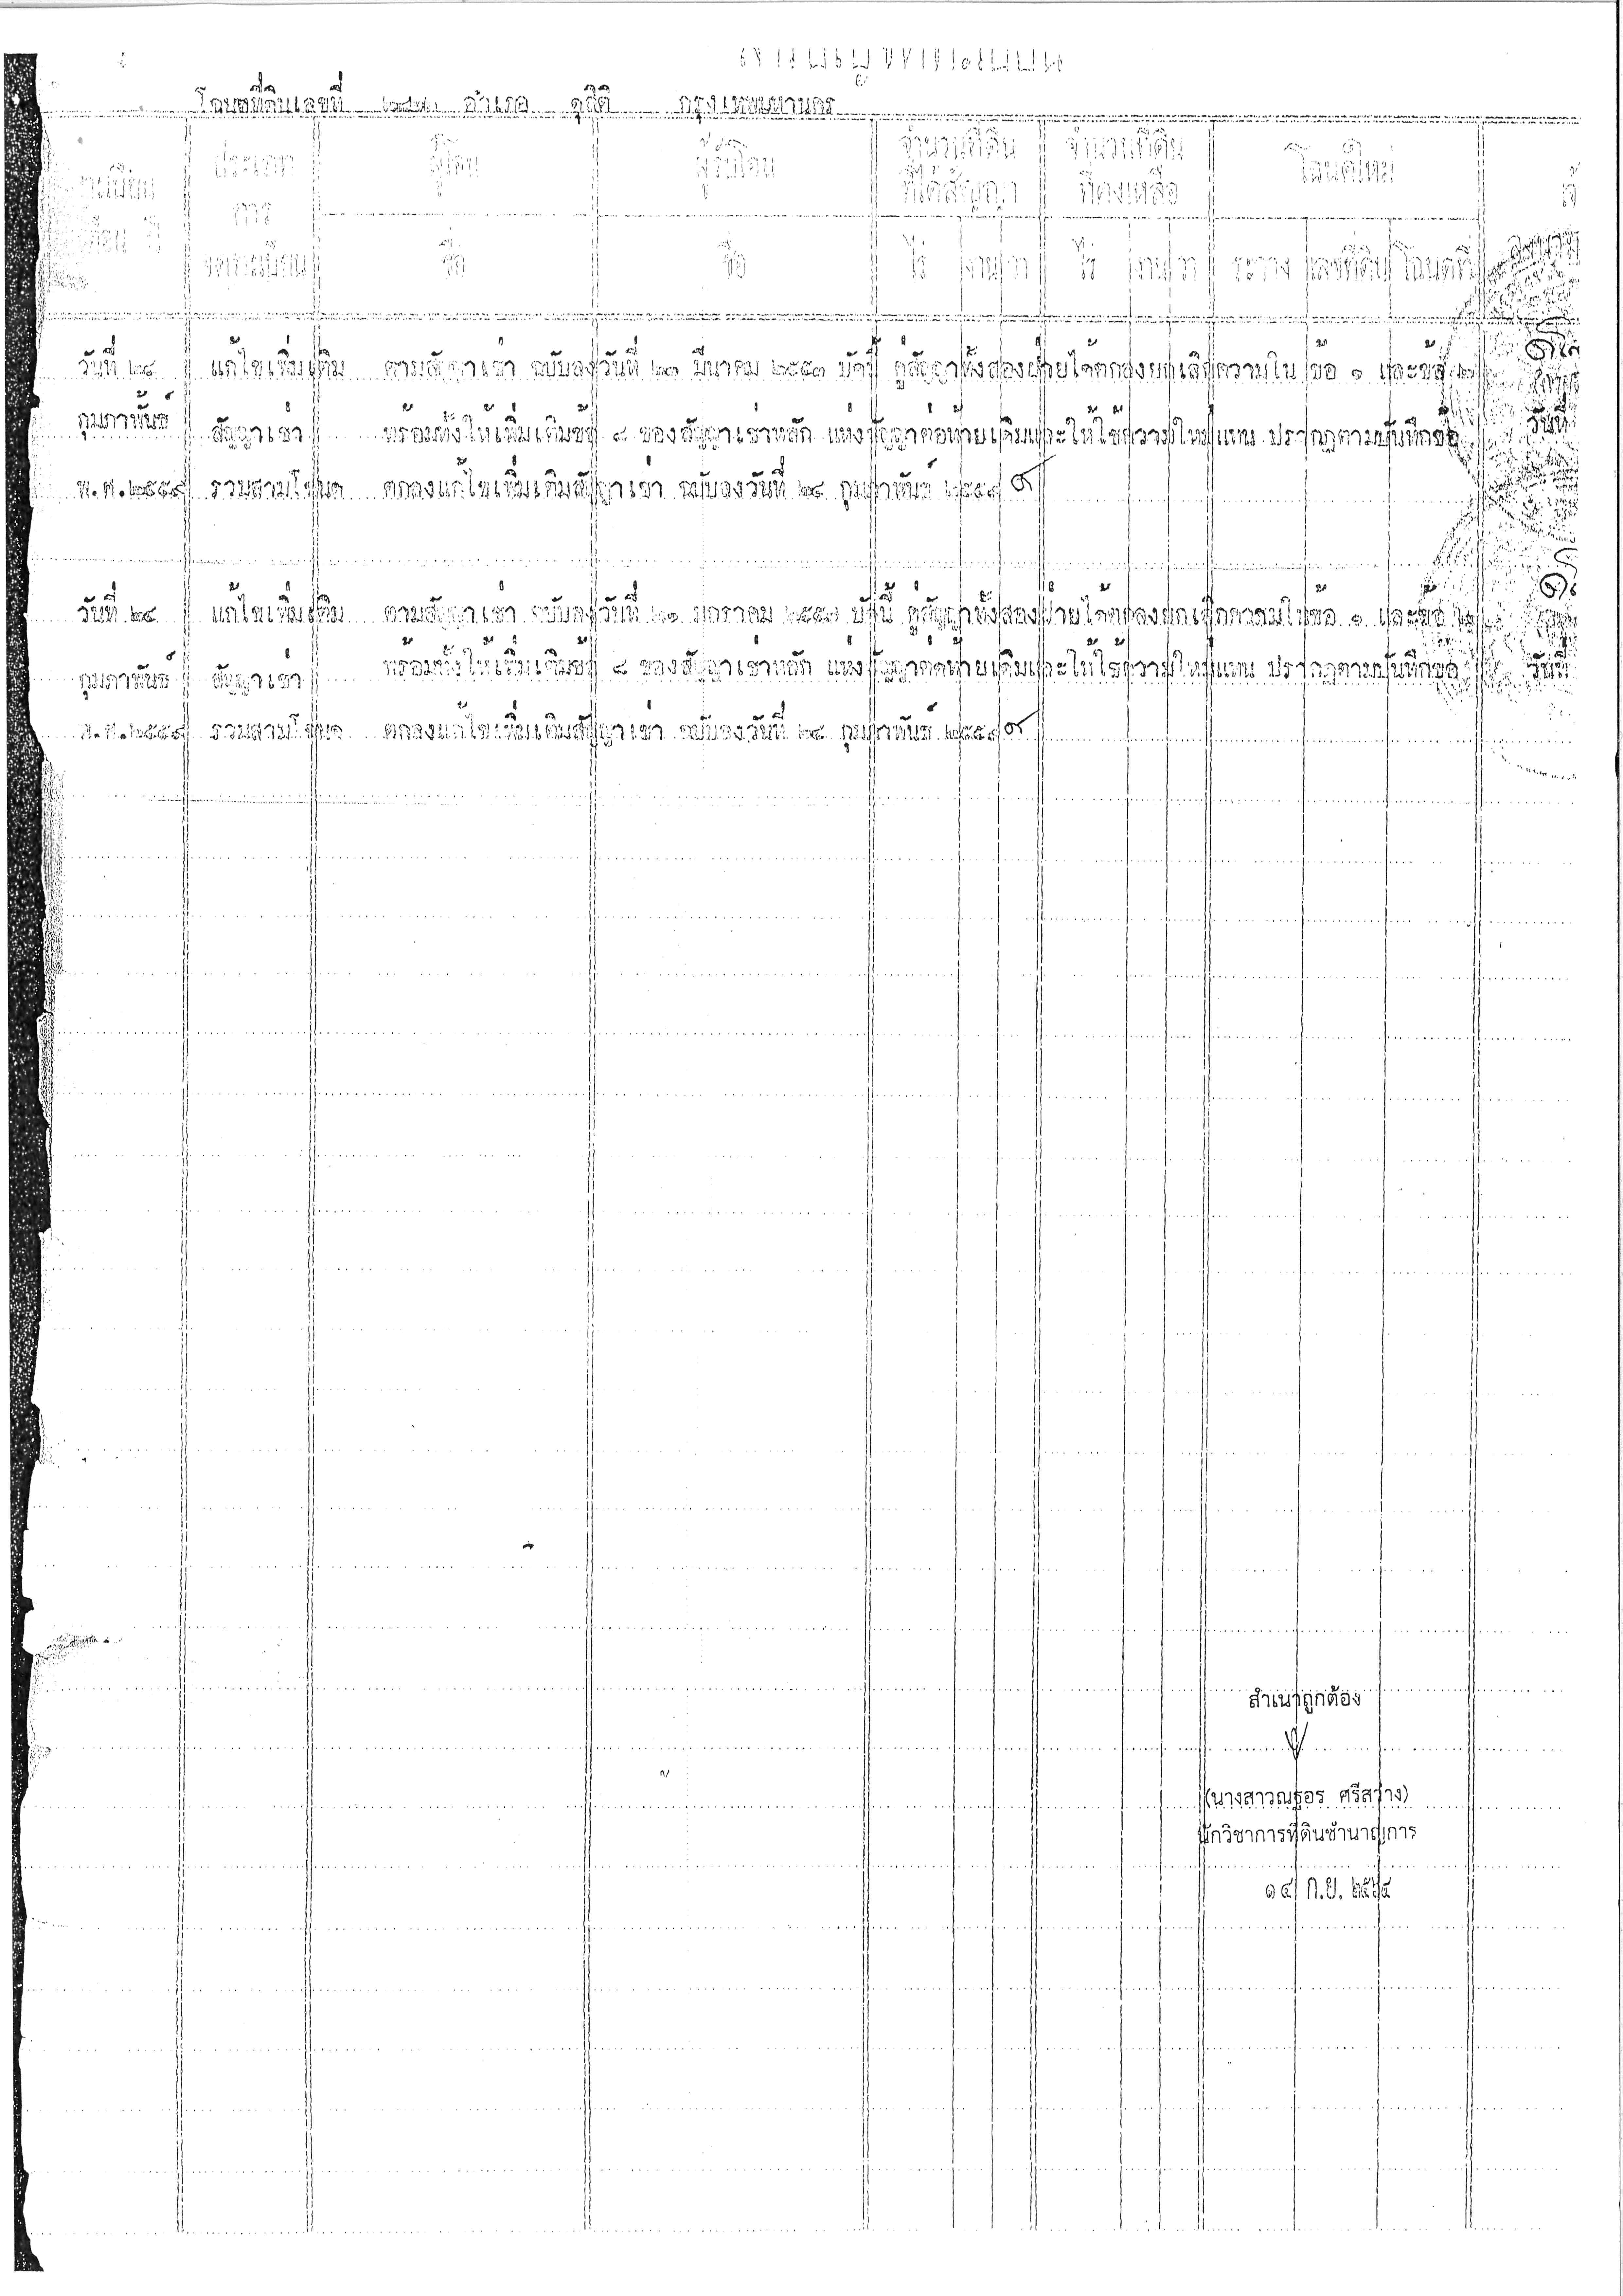 โฉนดที่ดินเลขที่ อำเภอ ดุสิต กรุงเทพมหานคร
ประเภท ผู้โอน ผู้รับโอน จำนวนที่ดิน จำนวนที่ดิน โฉนดใหม่
การ ที่ได้สัญญา ที่คงเหลือ
จดทะเบียน ชื่อ ชื่อ ไร่ งาน วา ไร่ งาน วา ระวาง เลขที่ดิน โฉนดที่
วันที่ ๒๘ แก้ไขเพิ่มเติม ตามสัญญาเช่า ฉบับลงวันที่ ๒๓ มีนาคม ๒๕๕๓ คู่สัญญาทั้งสองฝ่ายได้ตกลงยกเลิกความใน ข้อ ๑ และข้อ ๒
กุมภาพันธ์ สัญญาเช่า พร้อมทั้งให้เพิ่มเติมข้อ ๘ ของสัญญาเช่าหลัก แห่งสัญญาต่อท้ายเดิมและให้ใช้ความใหม่แทน ปรากฏตามบันทึกข้อ วันที่
พ.ศ.๒๕๕๙ รวมสามโฉนด ตกลงแก้ไขเพิ่มเติมสัญญาเช่า ฉบับลงวันที่ ๒๘ กุมภาพันธ์ ๒๕๕๙
วันที่ ๒๘ แก้ไขเพิ่มเติม ตามสัญญาเช่า ฉบับลงวันที่ ๒๑ มกราคม นี้ คู่สัญญาทั้งสองฝ่ายได้ตกลงยกเลิกความในข้อ ๑ และข้อ ๒
กุมภาพันธ์ สัญญาเช่า พร้อมทั้งให้เพิ่มเติมข้อ ๘ ของสัญญาเช่าหลัก แห่งสัญญาต่อท้ายเดิมและให้ใช้ความใหม่แทน ปรากฏตามบันทึกข้อ วันที่
พ.ศ.๒๕๕๙ รวมสามโฉนด ตกลงแก้ไขเพิ่มเติมสัญญาเช่า ฉบับลงวันที่ ๒๘ กุมภาพันธ์ ๒๕๕๙
สำเนาถูกต้อง
(นางสาวณฐอร ศรีสว่าง)
นักวิชาการที่ดินชำนาญการ
๑๔ ก.ย. ๒๕๖๕